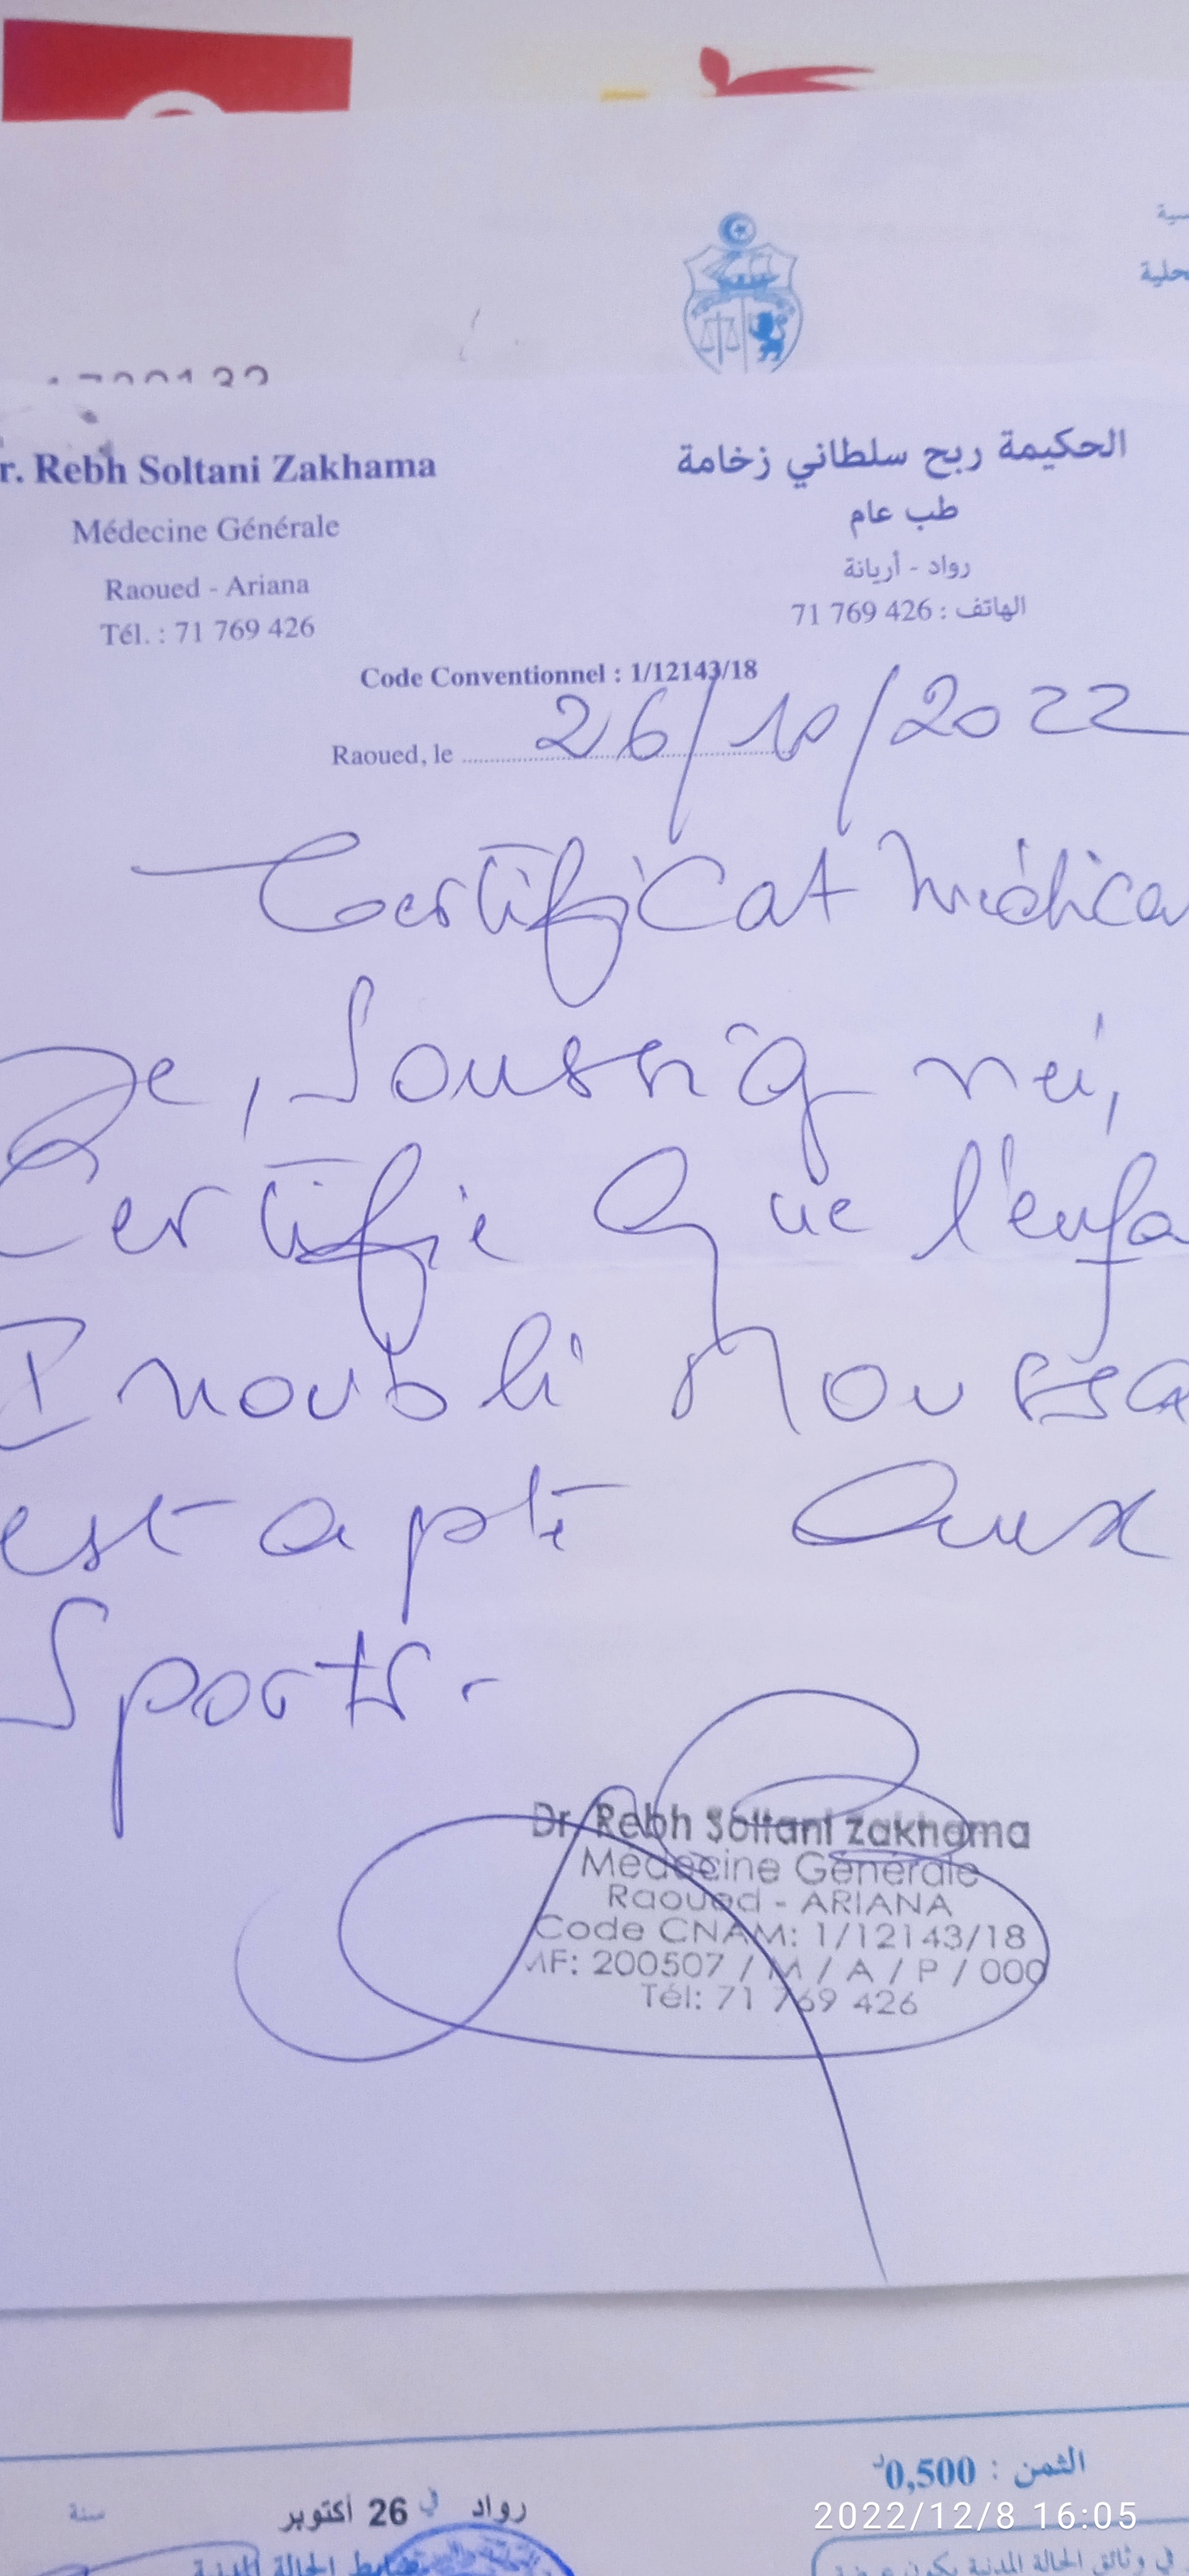 سية
حلية
r. Rebh Soltani Zakhama
Médecine Générale
Raoued - Ariana
Tél. : 71 769 426
الحكيمة ربح سلطاني زخامة
طب عام
رواد - أريانة
الهاتف : 426 769 71
Code Conventionnel : 1/12143/18
Raoued, le 26/10/2022
Certificat Médica
Je, Soussigné,
Certifie que l'enfa
Inoubli Moussa
est apte aux
Sports.
Dr. Rebh Soltani Zakhama
Médecine Générale
Raoued - ARIANA
Code CNAM: 1/12143/18
MF: 200507 / M / A / P / 000
Tél: 71 769 426
الثمن : 0,500د
رواد في 26 أكتوبر سنة
ضابط الحالة المدنية
2022/12/8 16:05